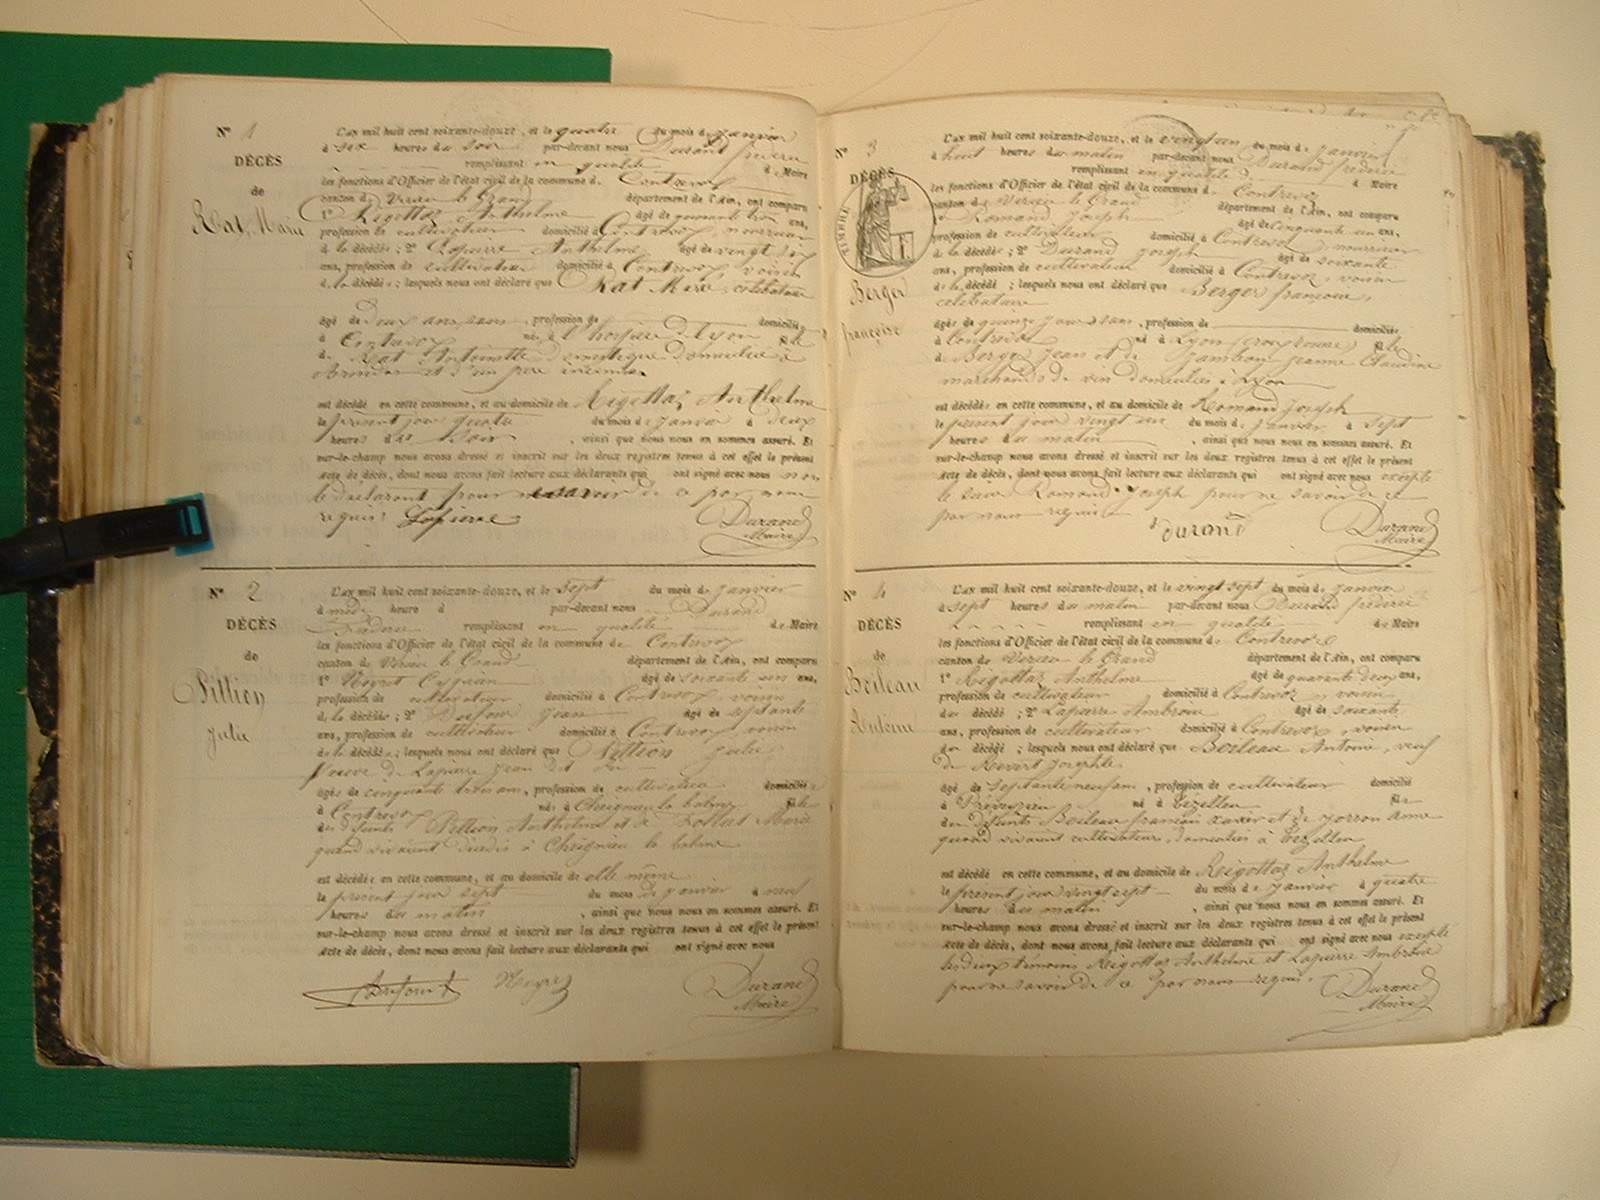 N° 1
DÉCÈS
de
Rat Marie
L'an mil huit cent soixante-douze, et le quatre du mois de janvier
à six heures du soir par-devant nous Durand fréderic
remplissant en qualité de Maire
les fonctions d'Officier de l'état civil de la commune de Contrevoz
canton de Virieu le Grand département de l'Ain, ont comparu
1° Rigottaz Anthelme âgé de quarante trois ans,
profession de cultivateur domicilié à Contrevoz nourricier
de la décédée; 2° Lapierre Anthelme âgé de vingt six
ans, profession de cultivateur domicilié à Contrevoz voisin
de la décédée; lesquels nous ont déclaré que Rat Marie célibataire
âgé de deux ans, profession de domiciliée
à Contrevoz née à l'hospice de Lyon fille
de Rat Antoinette domestique domiciliée à
et d'un père inconnu
est décédée en cette commune, et au domicile de Rigottaz Anthelme
le présent jour quatre du mois de janvier à deux
heures du soir, ainsi que nous nous en sommes assuré. Et
sur-le-champ nous avons dressé et inscrit sur les deux registres tenus à cet effet le présent
acte de décès, dont nous avons fait lecture aux déclarants qui ont signé avec nous non
le déclarant pour ne savoir de ce par nous
requis. Lapierre Durand
Maire
N° 2
DÉCÈS
de
Pillion
Julie
L'an mil huit cent soixante-douze, et le sept du mois de janvier
à midi heure à par-devant nous Durand
fréderic remplissant en qualité de Maire
les fonctions d'Officier de l'état civil de la commune de Contrevoz
canton de Virieu le Grand département de l'Ain, ont comparu
1° Neyret âgé de soixante un ans,
profession de cultivateur domicilié à Contrevoz voisin
de la décédée; 2° Dufour Jean âgé de septante
ans, profession de cultivateur domicilié à Contrevoz voisin
de la décédée; lesquels nous ont déclaré que Pillion Julie
veuve de Lapierre Jean
âgée de cinquante trois ans, profession de cultivatrice domiciliée
à Contrevoz née à Cheignieu la balme fille
des défunts Pillion Anthelme et de Marie
quand vivaient à Cheignieu la balme
est décédée en cette commune, et au domicile de elle même
le présent jour sept du mois de janvier à neuf
heures du matin, ainsi que nous nous en sommes assuré. Et
sur-le-champ nous avons dressé et inscrit sur les deux registres tenus à cet effet le présent
acte de décès, dont nous avons fait lecture aux déclarants qui ont signé avec nous
Durand
Maire
N° 3
DÉCÈS
TIMBRE
Berger
françoise
L'an mil huit cent soixante-douze, et le vingt un du mois de janvier
à huit heures du matin par-devant nous Durand fréderic
remplissant en qualité de Maire
les fonctions d'Officier de l'état civil de la commune de Contrevoz
canton de Virieu le Grand département de l'Ain, ont comparu
1° Romand Joseph âgé de cinquante un ans,
profession de cultivateur domicilié à Contrevoz nourricier
de la décédée; 2° Durand Joseph âgé de soixante
ans, profession de cultivateur domicilié à Contrevoz voisin
de la décédée; lesquels nous ont déclaré que Berger françoise,
célibataire
âgée de quinze jours ans, profession de domiciliée
à Contrevoz née à Lyon (croix rousse) fille
de Berger Jean et de Jambon Jeanne Claudine
marchands de vin domiciliés à Lyon
est décédée en cette commune, et au domicile de Romand Joseph
le présent jour vingt un du mois de janvier à sept
heures du matin, ainsi que nous nous en sommes assuré. Et
sur-le-champ nous avons dressé et inscrit sur les deux registres tenus à cet effet le présent
acte de décès, dont nous avons fait lecture aux déclarants qui ont signé avec nous excepté
le sieur Romand Joseph pour ne savoir de ce
par nous requis
durand Durand
Maire
N° 4
DÉCÈS
de
Boileau
Antoine
L'an mil huit cent soixante-douze, et le vingt sept du mois de janvier
à sept heures du matin par-devant nous Durand fréderic
remplissant en qualité de Maire
les fonctions d'Officier de l'état civil de la commune de Contrevoz
canton de Virieu le Grand département de l'Ain, ont comparu
1° Rigottaz Anthelme âgé de quarante deux ans,
profession de cultivateur domicilié à Contrevoz voisin
du décédé; 2° Lapierre Ambroise âgé de soixante
ans, profession de cultivateur domicilié à Contrevoz, voisin
du décédé; lesquels nous ont déclaré que Boileau Antoine, veuf
de Josephte
âgé de septante neuf ans, profession de cultivateur domicilié
à né à Lézellen fils
des défunts Boileau françois xavier et de Jorron Anne
quand vivaient cultivateurs domiciliés à
est décédé en cette commune, et au domicile de Rigottaz Anthelme
le présent jour vingt sept du mois de janvier à quatre
heures du matin, ainsi que nous nous en sommes assuré. Et
sur-le-champ nous avons dressé et inscrit sur les deux registres tenus à cet effet le présent
acte de décès, dont nous avons fait lecture aux déclarants qui ont signé avec nous excepté
les deux témoins Rigottaz Anthelme et Lapierre Ambroise
pour ne savoir de ce par nous requis. Durand
Maire